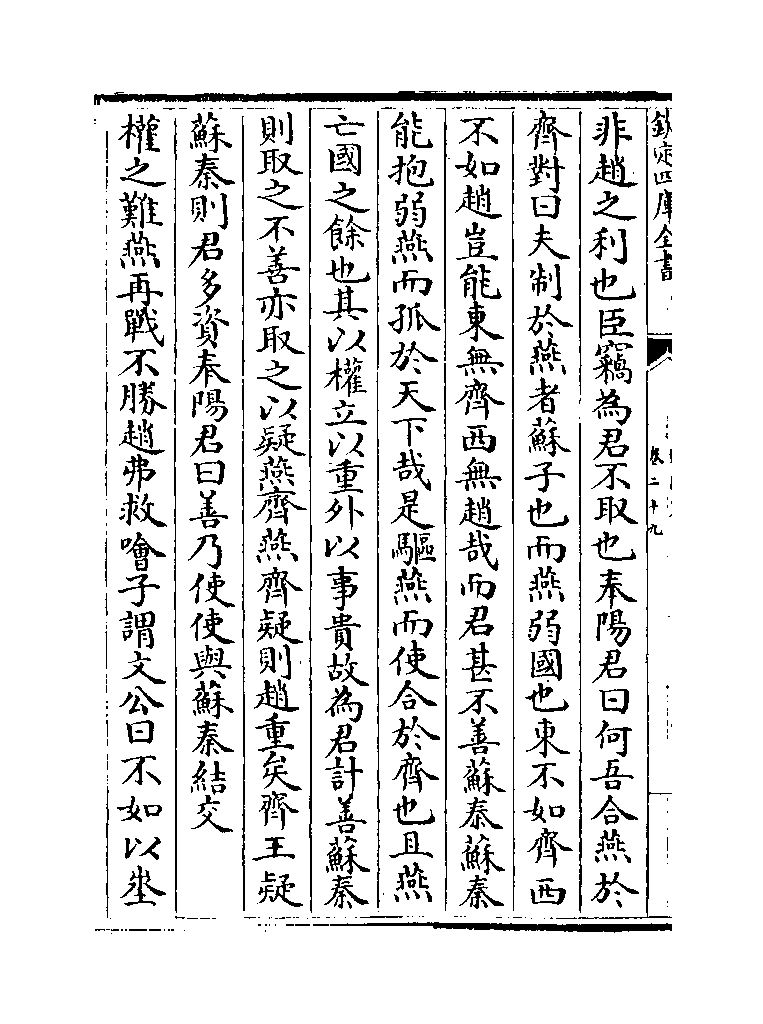 欽定四庫全書
卷二十九
非趙之利也臣竊為君不取也奉陽君曰何吾合燕於
齊對曰夫制於燕者蘇子也而燕弱國也東不如齊西
不如趙豈能東無齊西無趙哉而君甚不善蘇秦蘇秦
能抱弱燕而孤於天下哉是驅燕而使合於齊也且燕
亡國之餘也其以權立以重外以事貴故為君計善蘇秦
則取之不善亦取之以疑燕齊燕齊疑則趙重矣齊王疑
蘇秦則君多資奉陽君曰善乃使使與蘇秦結交
權之難燕再戰不勝趙弗救噲子謂文公曰不如以坐